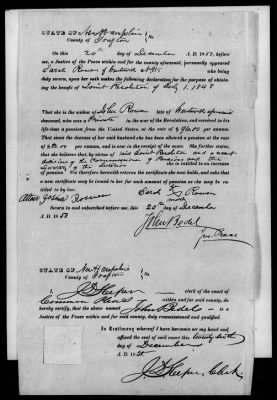 STATE OF New Hampshire
County of Grafton } ss.
On this 20th day of December A. D. 1850, before me,
a Justice of the Peace within and for the county aforesaid, personally appeared
Sarah Rowen of
who being
duly sworn, upon her oath makes the following declaration for the purpose of obtaining
the benefit of Joint Resolution of July 1. 1848
That she is the widow of John Rowen late of
deceased, who was a Private in the war of the Revolution, and received in his
life-time a pension from the United States, at the rate of $ per annum.
That since the decease of her said husband she has been allowed a pension at the rate
of $ per annum, and is now in the receipt of the same. She further states,
that she believes, that by virtue of said Joint Resolution and a
decision of the Commissioner of Pensions and the
Secretary of the Interior she is entitled to an increase
of pension. She therefore herewith returns the certificate which she holds, and asks that
a new certificate may be issued to her for such amount of pension as she may be entitled to by law.
Sarah X Rowen
her
mark
Attest
Sworn to and subscribed before me, this 20th day of December
A. D. 1850
John Bedel
Jus. Peace
STATE OF New Hampshire
County of Grafton } ss.
I, clerk of the court
Common Pleas within and for said county, do
hereby certify, that the above named John Bedel is a
Justice of the Peace within and for said county, duly commissioned and qualified.
In Testimony whereof I have hereunto set my hand and
affixed the seal of said court this twenty sixth
day of December
A. D. 1850.
Clerk